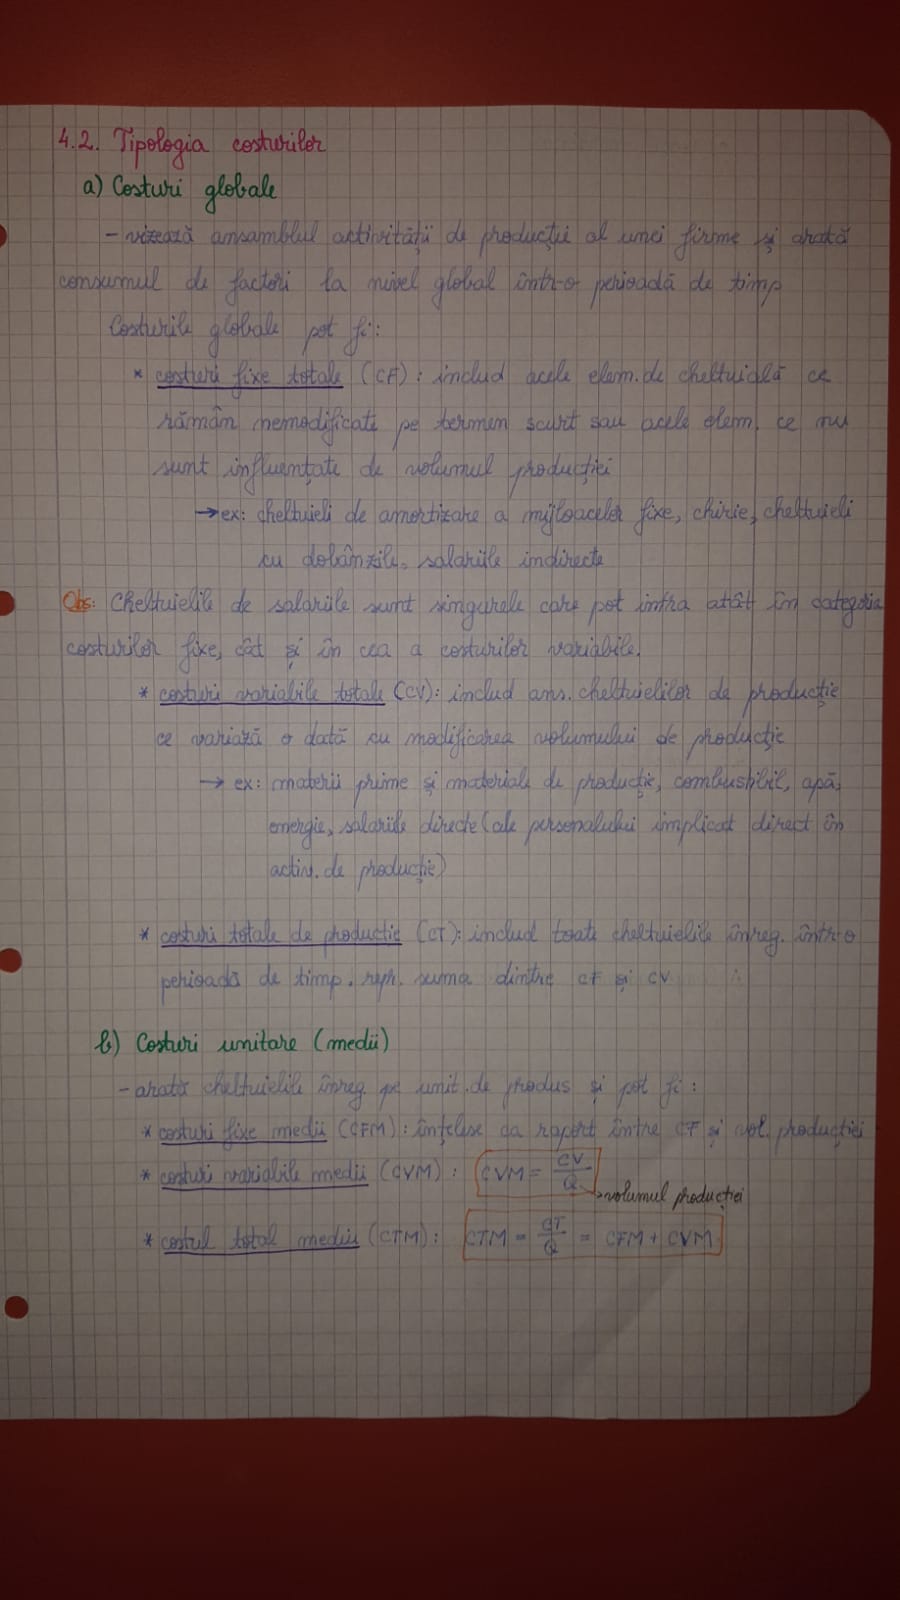 4.2. Tipologia costurilor
a) Costuri globale
- vizează ansamblul activității de producție al unei firme și arată
consumul de factori la nivel global într-o perioadă de timp
Costurile globale pot fi:
* costuri fixe totale (CF): includ acele elem. de cheltuială ce
rămân nemodificate pe termen scurt sau acele elem. ce nu
sunt influențate de volumul producției
→ ex: cheltuieli de amortizare a mijloacelor fixe, chirie, cheltuieli
cu dobânzile, salariile indirecte
Obs: Cheltuielile de salariile sunt singurele care pot intra atât în categoria
costurilor fixe, cât și în cea a costurilor variabile.
* costuri variabile totale (CV): includ ans. cheltuielilor de producție
ce variază o dată cu modificarea volumului de producție
→ ex: materii prime și materiale de producție, combustibil, apă,
energie, salariile directe (ale personalului implicat direct în
activ. de producție)
* costuri totale de producție (CT): includ toate cheltuielile înreg. într-o
perioadă de timp, repr. suma dintre CF și CV
b) Costuri unitare (medii)
- arată cheltuielile înreg. pe unit. de produs și pot fi:
* costuri fixe medii (CFM): înțelese ca raport între CF și vol. producției
* costuri variabile medii (CVM): CVM = CV/Q → volumul producției
* costul total mediu (CTM): CTM = CT/Q = CFM + CVM